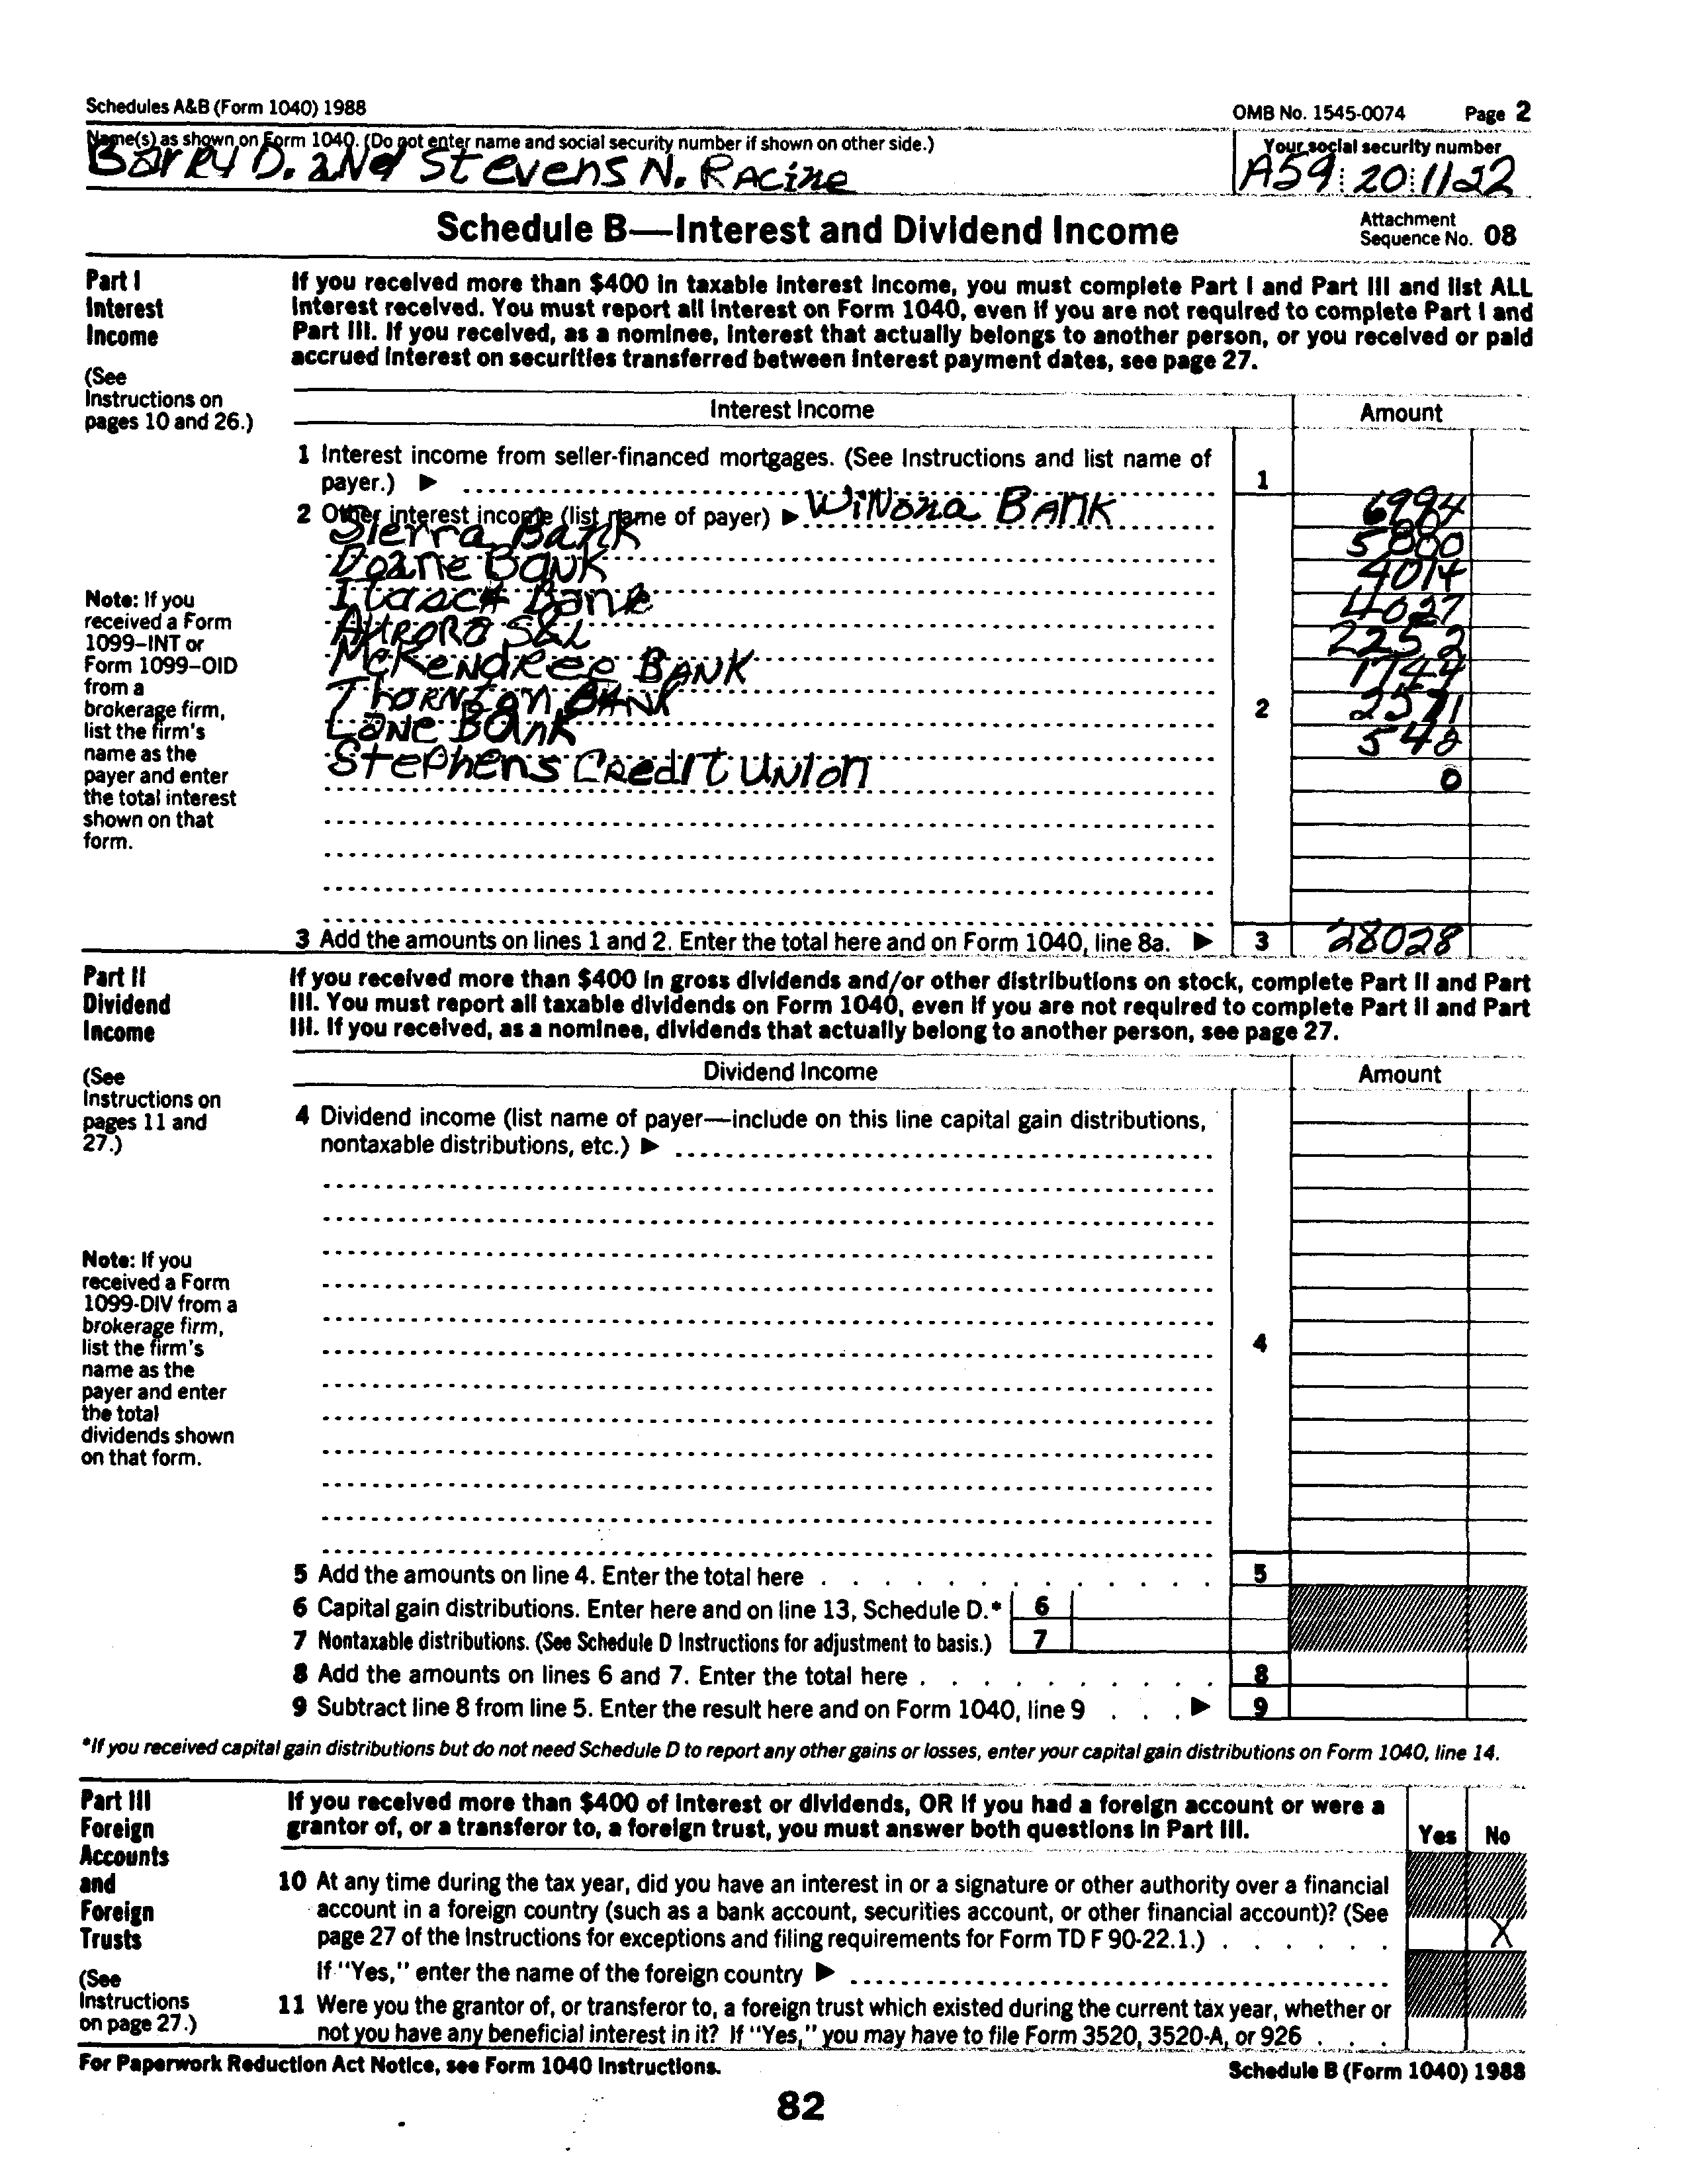 Schedules A&B (Form 1040) 1988 OMB No. 1545-0074 Page 2
Name(s) as shown on Form 1040. (Do not enter name and social security number if shown on other side.) Your social security number
Barry D. and Stevens N. Racine A59 20 1122
Schedule B—Interest and Dividend Income Attachment Sequence No. 08
Part I
Interest
Income
(See
Instructions on
pages 10 and 26.)
If you received more than $400 in taxable interest income, you must complete Part I and Part III and list ALL
interest received. You must report all interest on Form 1040, even if you are not required to complete Part I and
Part III. If you received, as a nominee, interest that actually belongs to another person, or you received or paid
accrued interest on securities transferred between interest payment dates, see page 27.
Interest Income Amount
1 Interest income from seller-financed mortgages. (See Instructions and list name of
payer.) ▶ 1
2 Other interest income (list name of payer) ▶ Winona Bank 6994
Sierra Bank 5880
Doane Bank 4014
Itasca Bank 4027
Aurora S&L 2252
McKendree Bank 1744
Thornton Bank 2571
Lane Bank 2 546
Stephens Credit Union 0
Note: If you
received a Form
1099–INT or
Form 1099–OID
from a
brokerage firm,
list the firm's
name as the
payer and enter
the total interest
shown on that
form.
3 Add the amounts on lines 1 and 2. Enter the total here and on Form 1040, line 8a. ▶ 3 28028
Part II
Dividend
Income
(See
Instructions on
pages 11 and
27.)
If you received more than $400 in gross dividends and/or other distributions on stock, complete Part II and Part
III. You must report all taxable dividends on Form 1040, even if you are not required to complete Part II and Part
III. If you received, as a nominee, dividends that actually belong to another person, see page 27.
Dividend Income Amount
4 Dividend income (list name of payer—include on this line capital gain distributions,
nontaxable distributions, etc.) ▶
Note: If you
received a Form
1099-DIV from a
brokerage firm,
list the firm's
name as the
payer and enter
the total
dividends shown
on that form.
4
5 Add the amounts on line 4. Enter the total here 5
6 Capital gain distributions. Enter here and on line 13, Schedule D.* 6
7 Nontaxable distributions. (See Schedule D Instructions for adjustment to basis.) 7
8 Add the amounts on lines 6 and 7. Enter the total here 8
9 Subtract line 8 from line 5. Enter the result here and on Form 1040, line 9 ▶ 9
*If you received capital gain distributions but do not need Schedule D to report any other gains or losses, enter your capital gain distributions on Form 1040, line 14.
Part III
Foreign
Accounts
and
Foreign
Trusts
(See
Instructions
on page 27.)
If you received more than $400 of interest or dividends, OR if you had a foreign account or were a
grantor of, or a transferor to, a foreign trust, you must answer both questions in Part III. Yes No
10 At any time during the tax year, did you have an interest in or a signature or other authority over a financial
account in a foreign country (such as a bank account, securities account, or other financial account)? (See
page 27 of the Instructions for exceptions and filing requirements for Form TD F 90-22.1.) X
If "Yes," enter the name of the foreign country ▶
11 Were you the grantor of, or transferor to, a foreign trust which existed during the current tax year, whether or
not you have any beneficial interest in it? If "Yes," you may have to file Form 3520, 3520-A, or 926
For Paperwork Reduction Act Notice, see Form 1040 Instructions. Schedule B (Form 1040) 1988
82